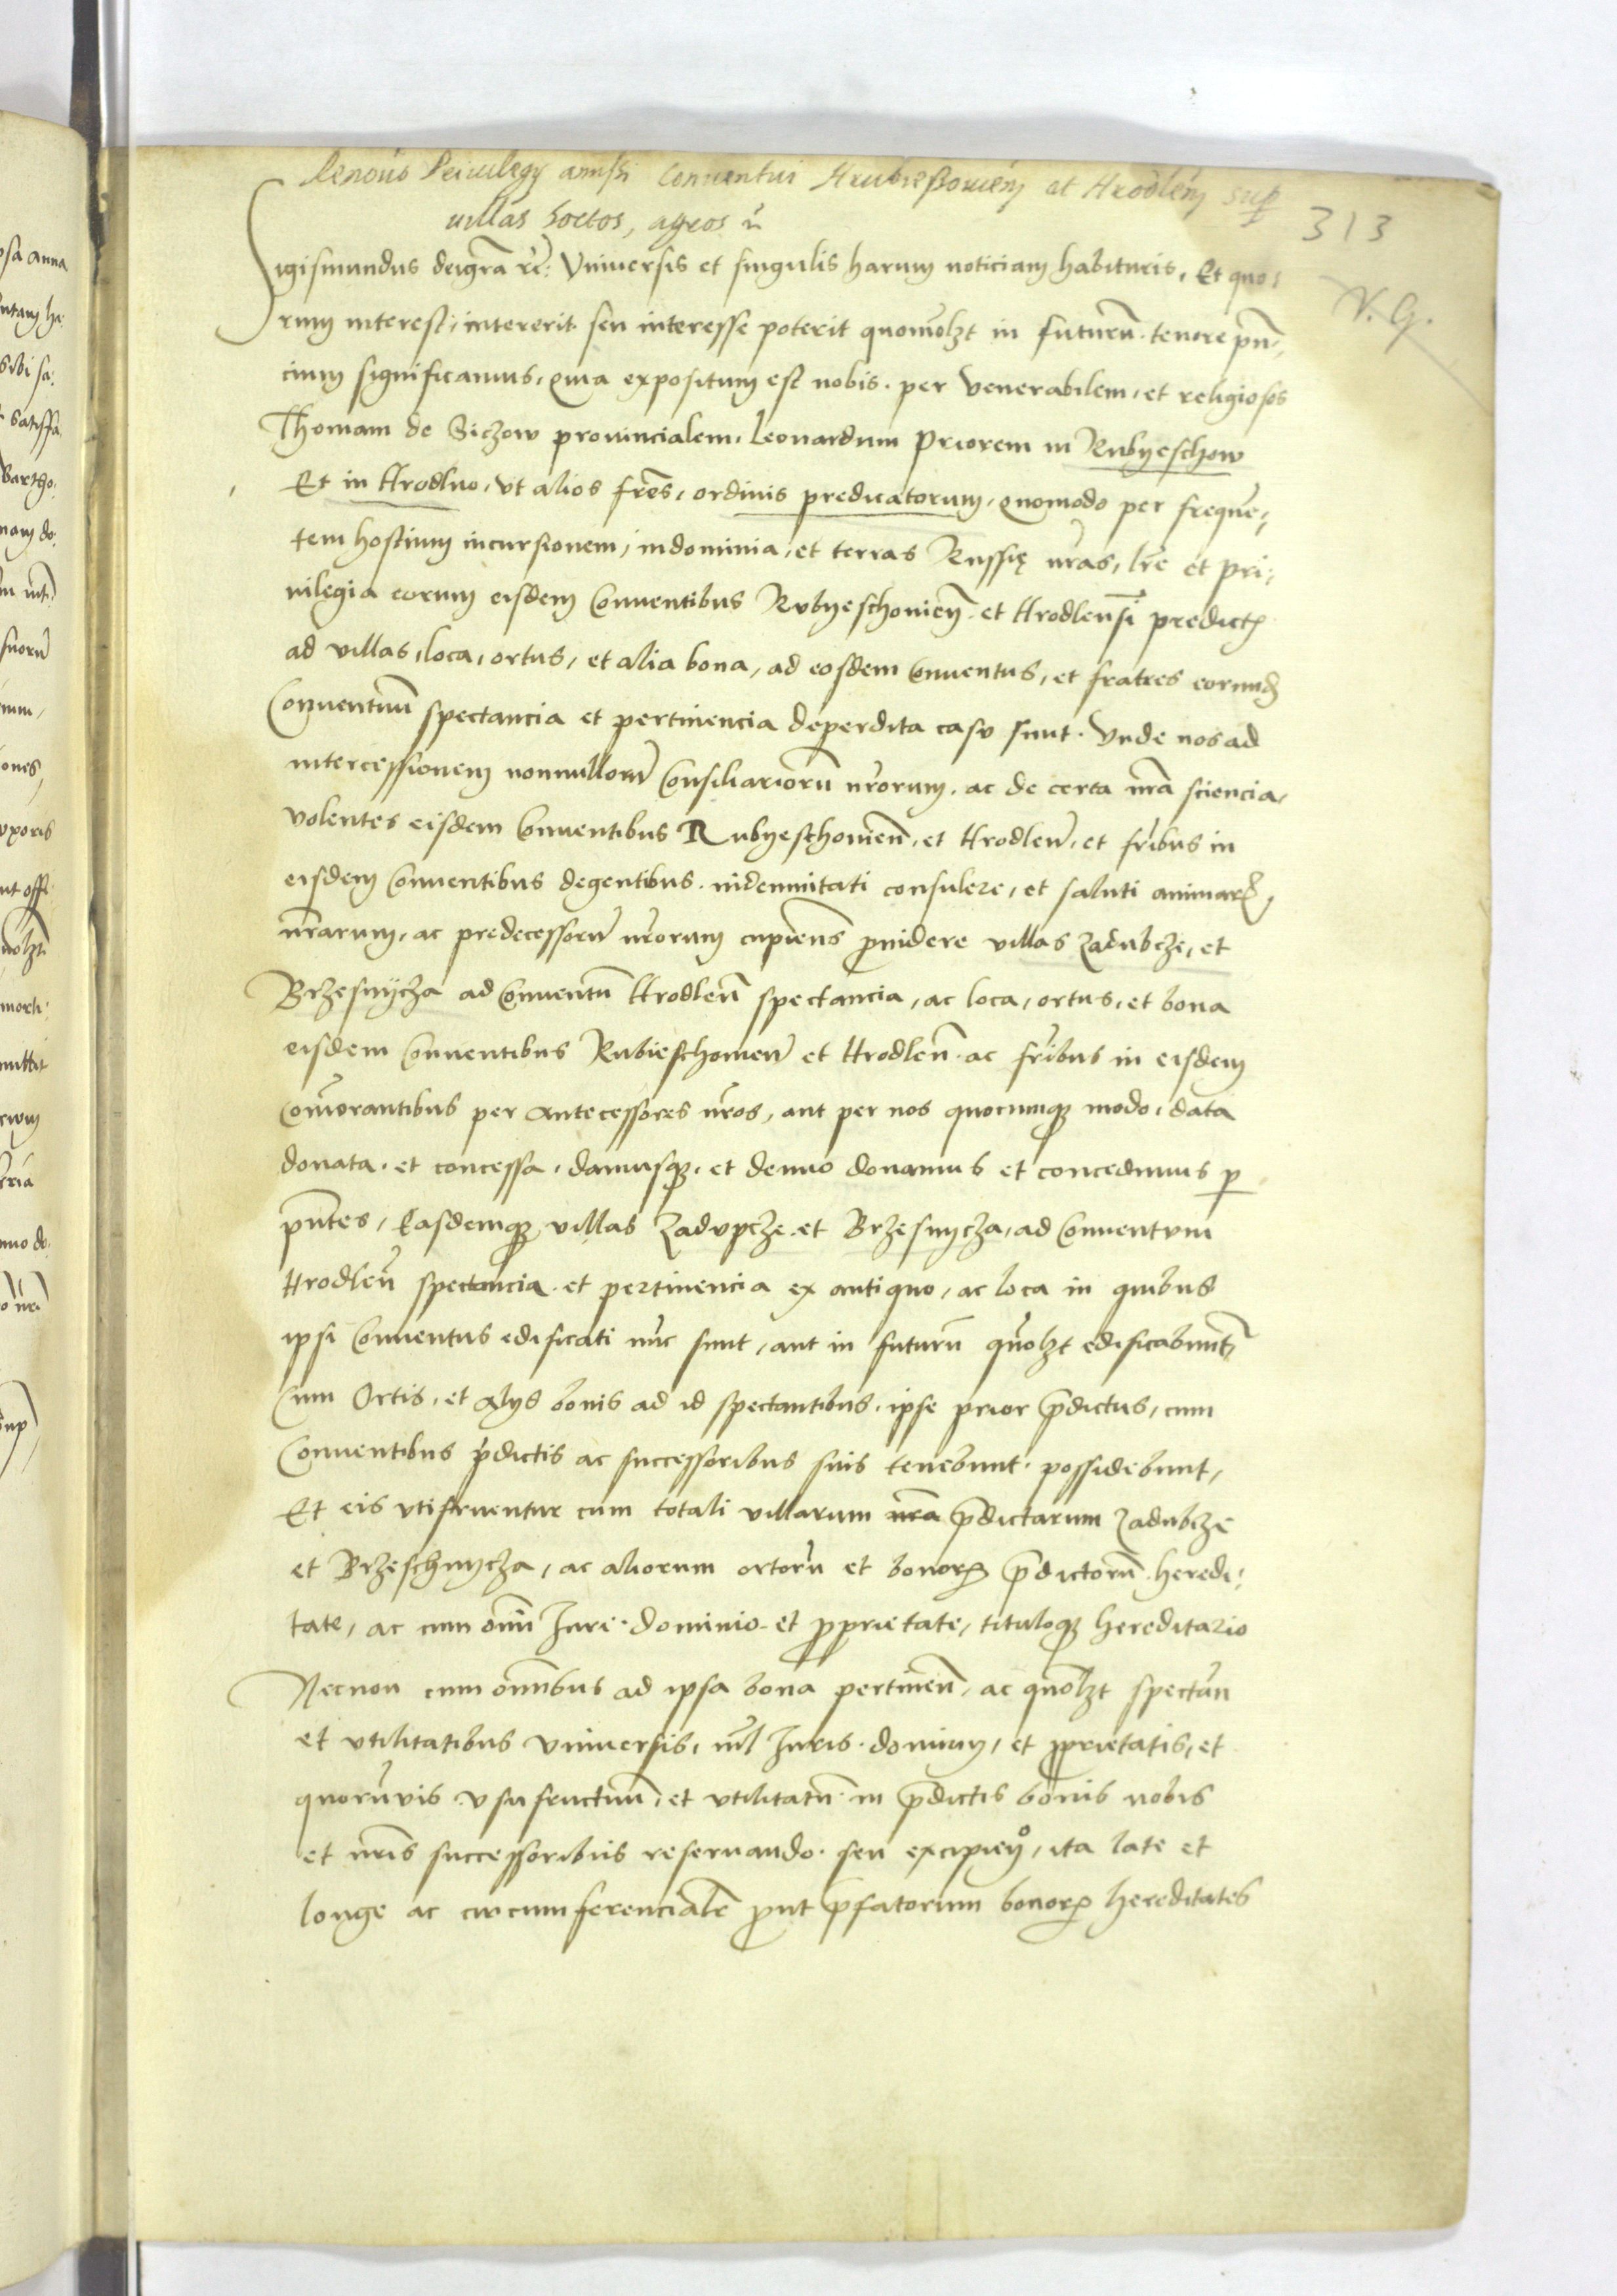 Renouo Priuilegy amissi Conuentui Hrubießouień et Hrodleń sup
villas hortos, agros &
313
V. G.
Sigismundus dei gra rc: Vniuersis et singulis harum noticiam habituris, Et quo:
rum interest, intererit seu interesse poterit quomolzt in futurū. tenore pn̄:
cium significamus, quia expositum est nobis. per Venerabilem, et religiosos
Thomam de Siczow prouincialem, Leonardum Priorem in Rubyeschow
Et in Hrodlno, vt alios fres, ordinis predicatorum, quomodo per freque:
tem hostium incursionem, in dominia, et terras Russię nr̄as, lr̄e et pri:
uilegia eorum eisdem Conuentibus Rubyeschouień. et Hrodlensi predict
ad villas, loca, ortus, et alia bona, ad eosdem Conuentus, et fratres eorund
Conuentuū spectancia et pertinencia deperdita casu sunt. Vnde nos ad
intercessionem nonnullorū Consiliariorū nr̄orum. ac de certa nr̄a sciencia,
volentes eisdem Conuentibus Rubyeschouień, et Hrodleń, et fr̄ibus in
eisdem Conuentibus degentibus. indemnitati consulere, et saluti animar
nr̄arum, ac predecessorū nr̄orum cupiens p̄uidere villas Zadubcze, et
Brzesnÿcza ad Conuentū Hrodleń spectancia, ac loca, ortus, et bona
eisdem Conuentibus Rubieschouień et Hrodleń. ac fr̄ibus in eisdem
Com̄orantibus per antecessores nr̄os, aut per nos quocumq modo, data
donata. et concessa, damusq, et denuo donamus et concedimus p
pn̄tes, Easdemq villas Zadupcze. et Brzesnycza, ad Conuentum
Hrodleń spectancia. et pertinencia ex antiquo, ac loca in quibus
ipsi Conuentus edificati nūc sunt, aut in futurū quōlzt edificabunt
Cum Ortis, et Alys bonis ad id spectantibus, ipse prior p̄dictus, cum
Conuentibus p̄dictis ac successoribus suis tenebunt. possidebunt,
Et eis vtifruentur cum totali villarum nr̄a p̄dictarum Zadubcze
et Brzeschnycza, ac aliorum ortorū et bonor p̄dictorū. heredi:
tate, ac cum om̄i Jure. dominio. et pprietate, tituloq hereditario
Necnon cum om̄ibus ad ipsa bona pertineń, ac quōlzt spectań
et vtilitatibus vniuersis, nil Juris. dominy, et pprietatis, et
quorūuis vsufructuū, et vtilitatū. in p̄dictis bonis nobis
et nr̄is successoribus reseruando. seu excipień, ita late et
longe ac circumferencialr̄ p̄ut p̄fatorum bonor hereditates